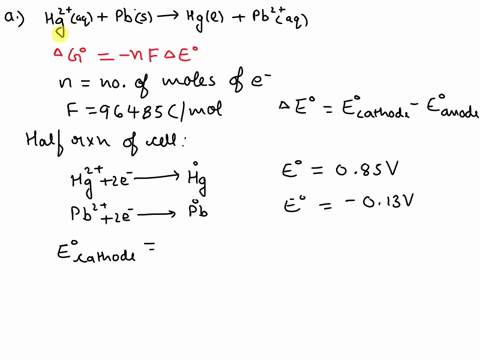 a.) Hg²⁺(aq) + Pb(s) → Hg(l) + Pb²⁺(aq)
ΔG° = -nFΔE°
n = no. of moles of e⁻
F = 96485 C/mol
ΔE° = E°cathode - E°anode
Half rxn of cell:
Hg²⁺ + 2e⁻ → Hg° E° = 0.85V
Pb²⁺ + 2e⁻ → Pb° E° = -0.13V
E°cathode =